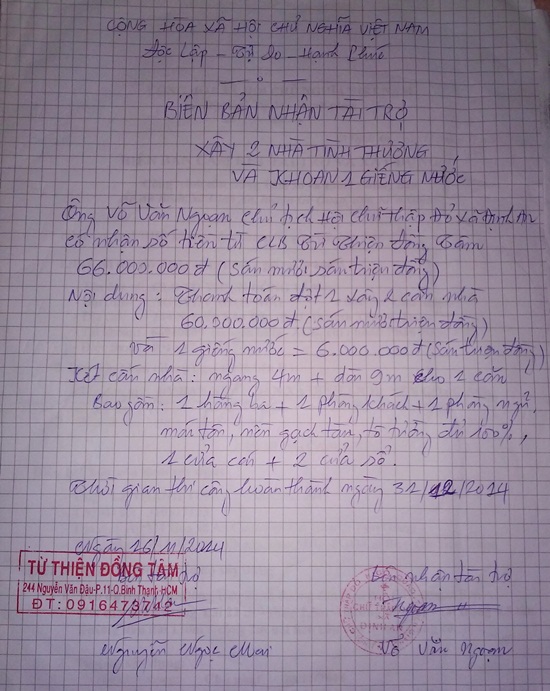 CỘNG HÒA XÃ HỘI CHỦ NGHĨA VIỆT NAM
Độc Lập - Tự Do - Hạnh Phúc
BIÊN BẢN NHẬN TÀI TRỢ
XÂY 2 NHÀ TÌNH THƯƠNG
VÀ KHOAN 1 GIẾNG NƯỚC
Ông Võ Văn Ngoạn Chủ tịch Hội chữ thập Đỏ xã Định An
có nhận số tiền từ CLB Từ Thiện Đồng Tâm
66.000.000đ (Sáu mươi sáu triệu đồng)
Nội dung: Thanh toán đợt 1 xây 2 căn nhà
60.000.000đ (Sáu mươi triệu đồng)
và 1 giếng nước = 6.000.000đ (Sáu triệu đồng)
căn nhà: ngang 4m + dài 9m cho 1 căn
Bao gồm: 1 hàng ba + 1 phòng khách + 1 phòng ngủ,
mái tôn, nền gạch tàu, tô tường đủ 100%,
1 cửa cái + 2 cửa sổ.
Thời gian thi công hoàn thành ngày 31/12/2014
Ngày 16/11/2014
bên tài trợ bên nhận tài trợ
TỪ THIỆN ĐỒNG TÂM
244 Nguyễn Văn Đậu-P.11-Q.Bình Thạnh-HCM
ĐT: 0916473742
Ngoạn
Nguyễn Ngọc Mai Võ Văn Ngoạn